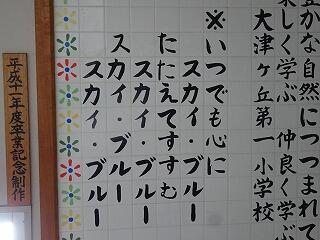 豊かな自然につつまれて
楽しく学ぶ 仲良く学ぶ
大津ヶ丘第一小学校
※いつでも心に
スカイ・ブルー
たたえてすすむ
スカイ・ブルー
スカイ・ブルー
スカイ・ブルー
平成十一年度卒業記念制作